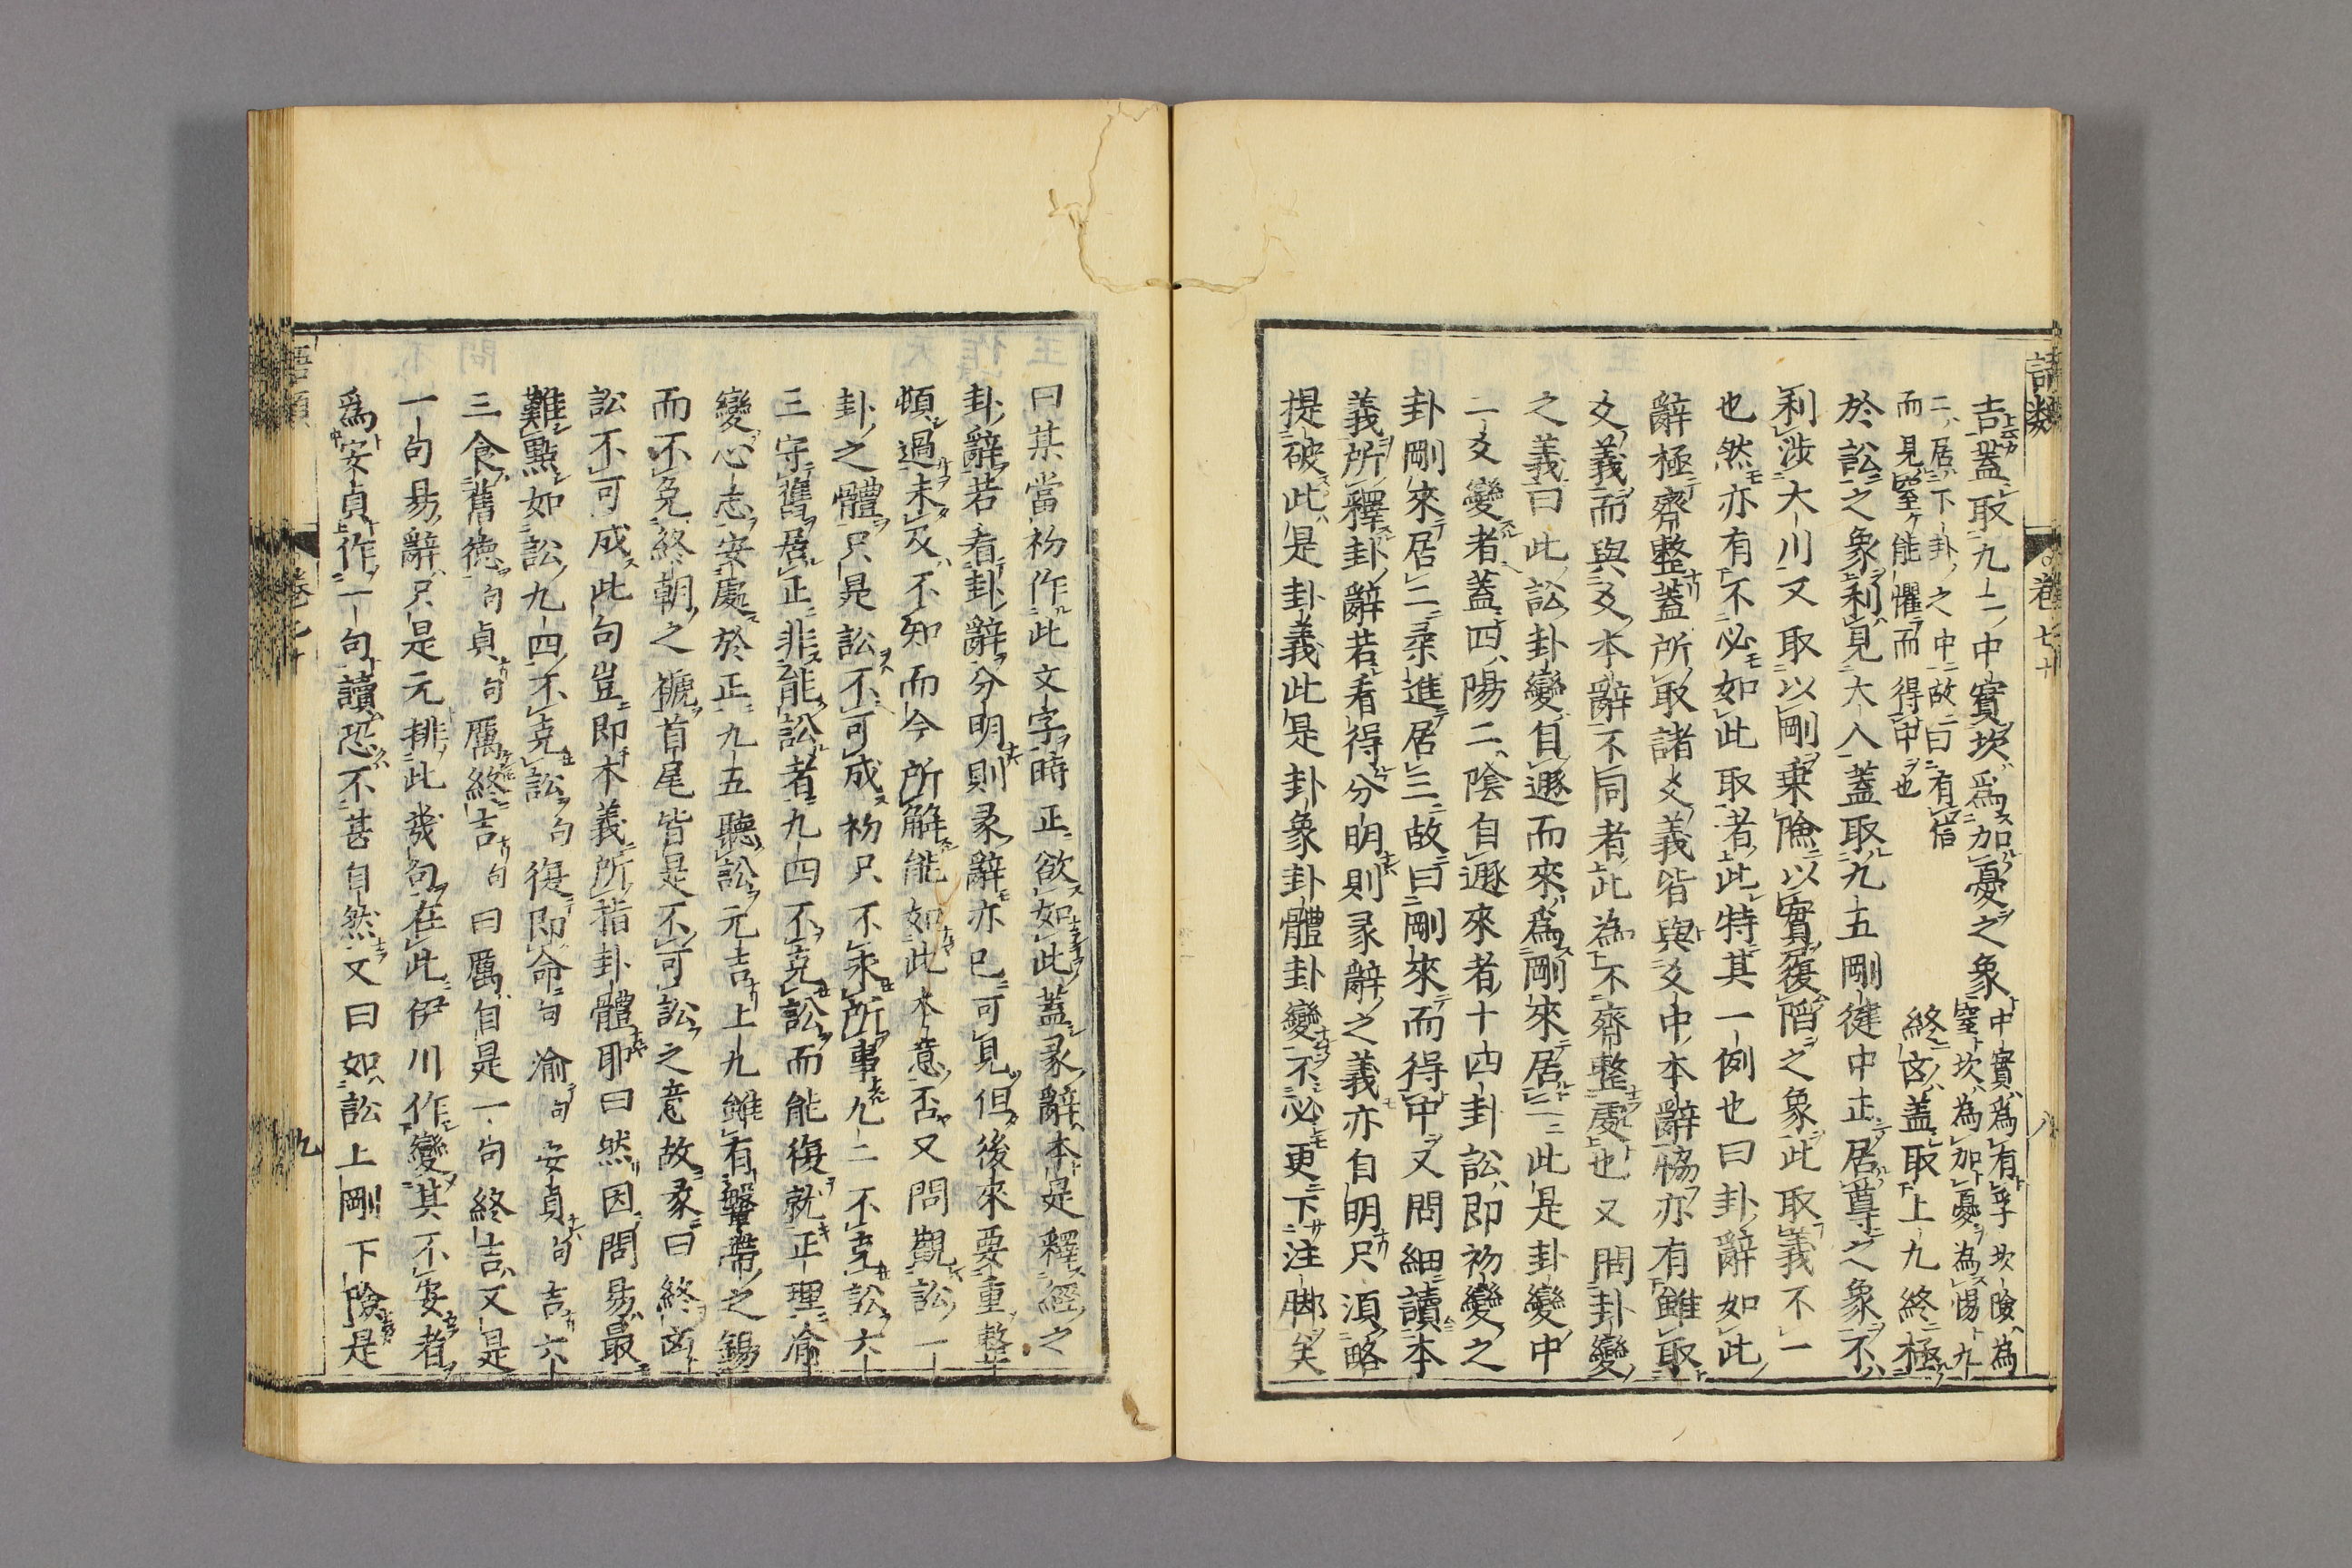 語類 卷七十 八
吉蓋取九二中實坎爲加憂之象中實爲有孚坎險爲
窒坎為加憂為惕九
二居下卦之中故曰有信
而見窒能懼而得中也
終凶蓋取上九終極
於訟之象利見大人蓋取九五剛健中正居尊之象不
利涉大川又取以剛乘險以實履陷之象此取義不一
也然亦有不必如此取者此特其一例也曰卦辭如此
辭極齊整蓋所取諸爻義皆與爻中本辭協亦有雖取
爻義而與爻本辭不同者此為不齊整處也又問卦變
之義曰此訟卦變自遯而來爲剛來居二此是卦變中
二爻變者蓋四陽二陰自遯來者十四卦訟即初變之
卦剛來居二柔進居三故曰剛來而得中又問細讀本
義所釋卦辭若看得分明則彖辭之義亦自明只須略
提破此是卦義此是卦象卦體卦變不必更下注脚矣
曰某當初作此文字時正欲如此蓋彖辭本是釋經之
卦辭若看卦辭分明則彖辭亦已可見但後來要重整
頓過未及不知而今所解能如此本意否又問觀訟一
卦之體只是訟不可成初只不永所事九二不克訟六
三守舊居正非能訟者九四不克訟而能復就正理渝
變心志安處於正九五聽訟元吉上九雖有鞶帶之錫
而不免終朝之褫首尾皆是不可訟之意故彖曰終凶
訟不可成此句豈即本義所指卦體耶曰然因問易最
難點如訟九四不克訟句復即命句渝句安貞句吉六
三食舊德句貞句厲終吉句曰厲自是一句終吉又是
一句易辭只是元排此幾句在此伊川作變其不安者
爲安貞作一句讀恐不甚自然又曰如訟上剛下險是
語類 卷七十 九